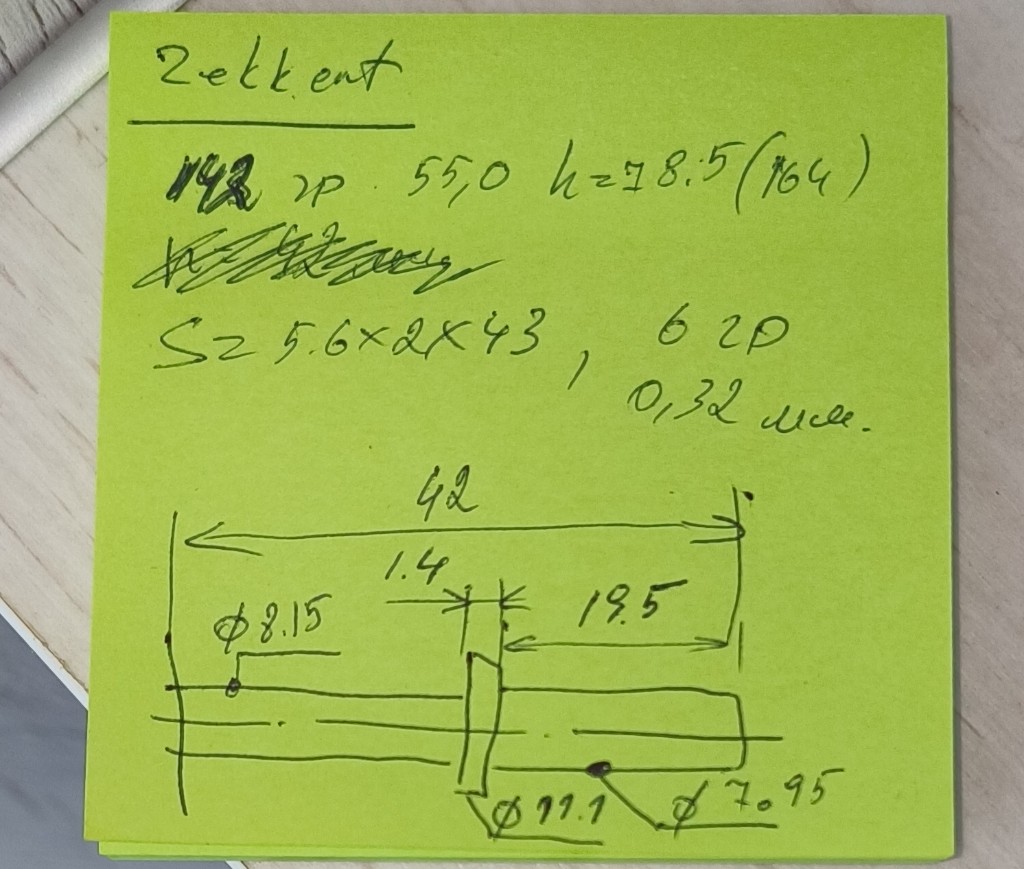 Zekkert
142 гр. 55,0 h=78.5(164)
S=5.6×2×43, 6 гр
0,32 мм.
42
1.4
19.5
ϕ8.15
ϕ11.1
ϕ7.95